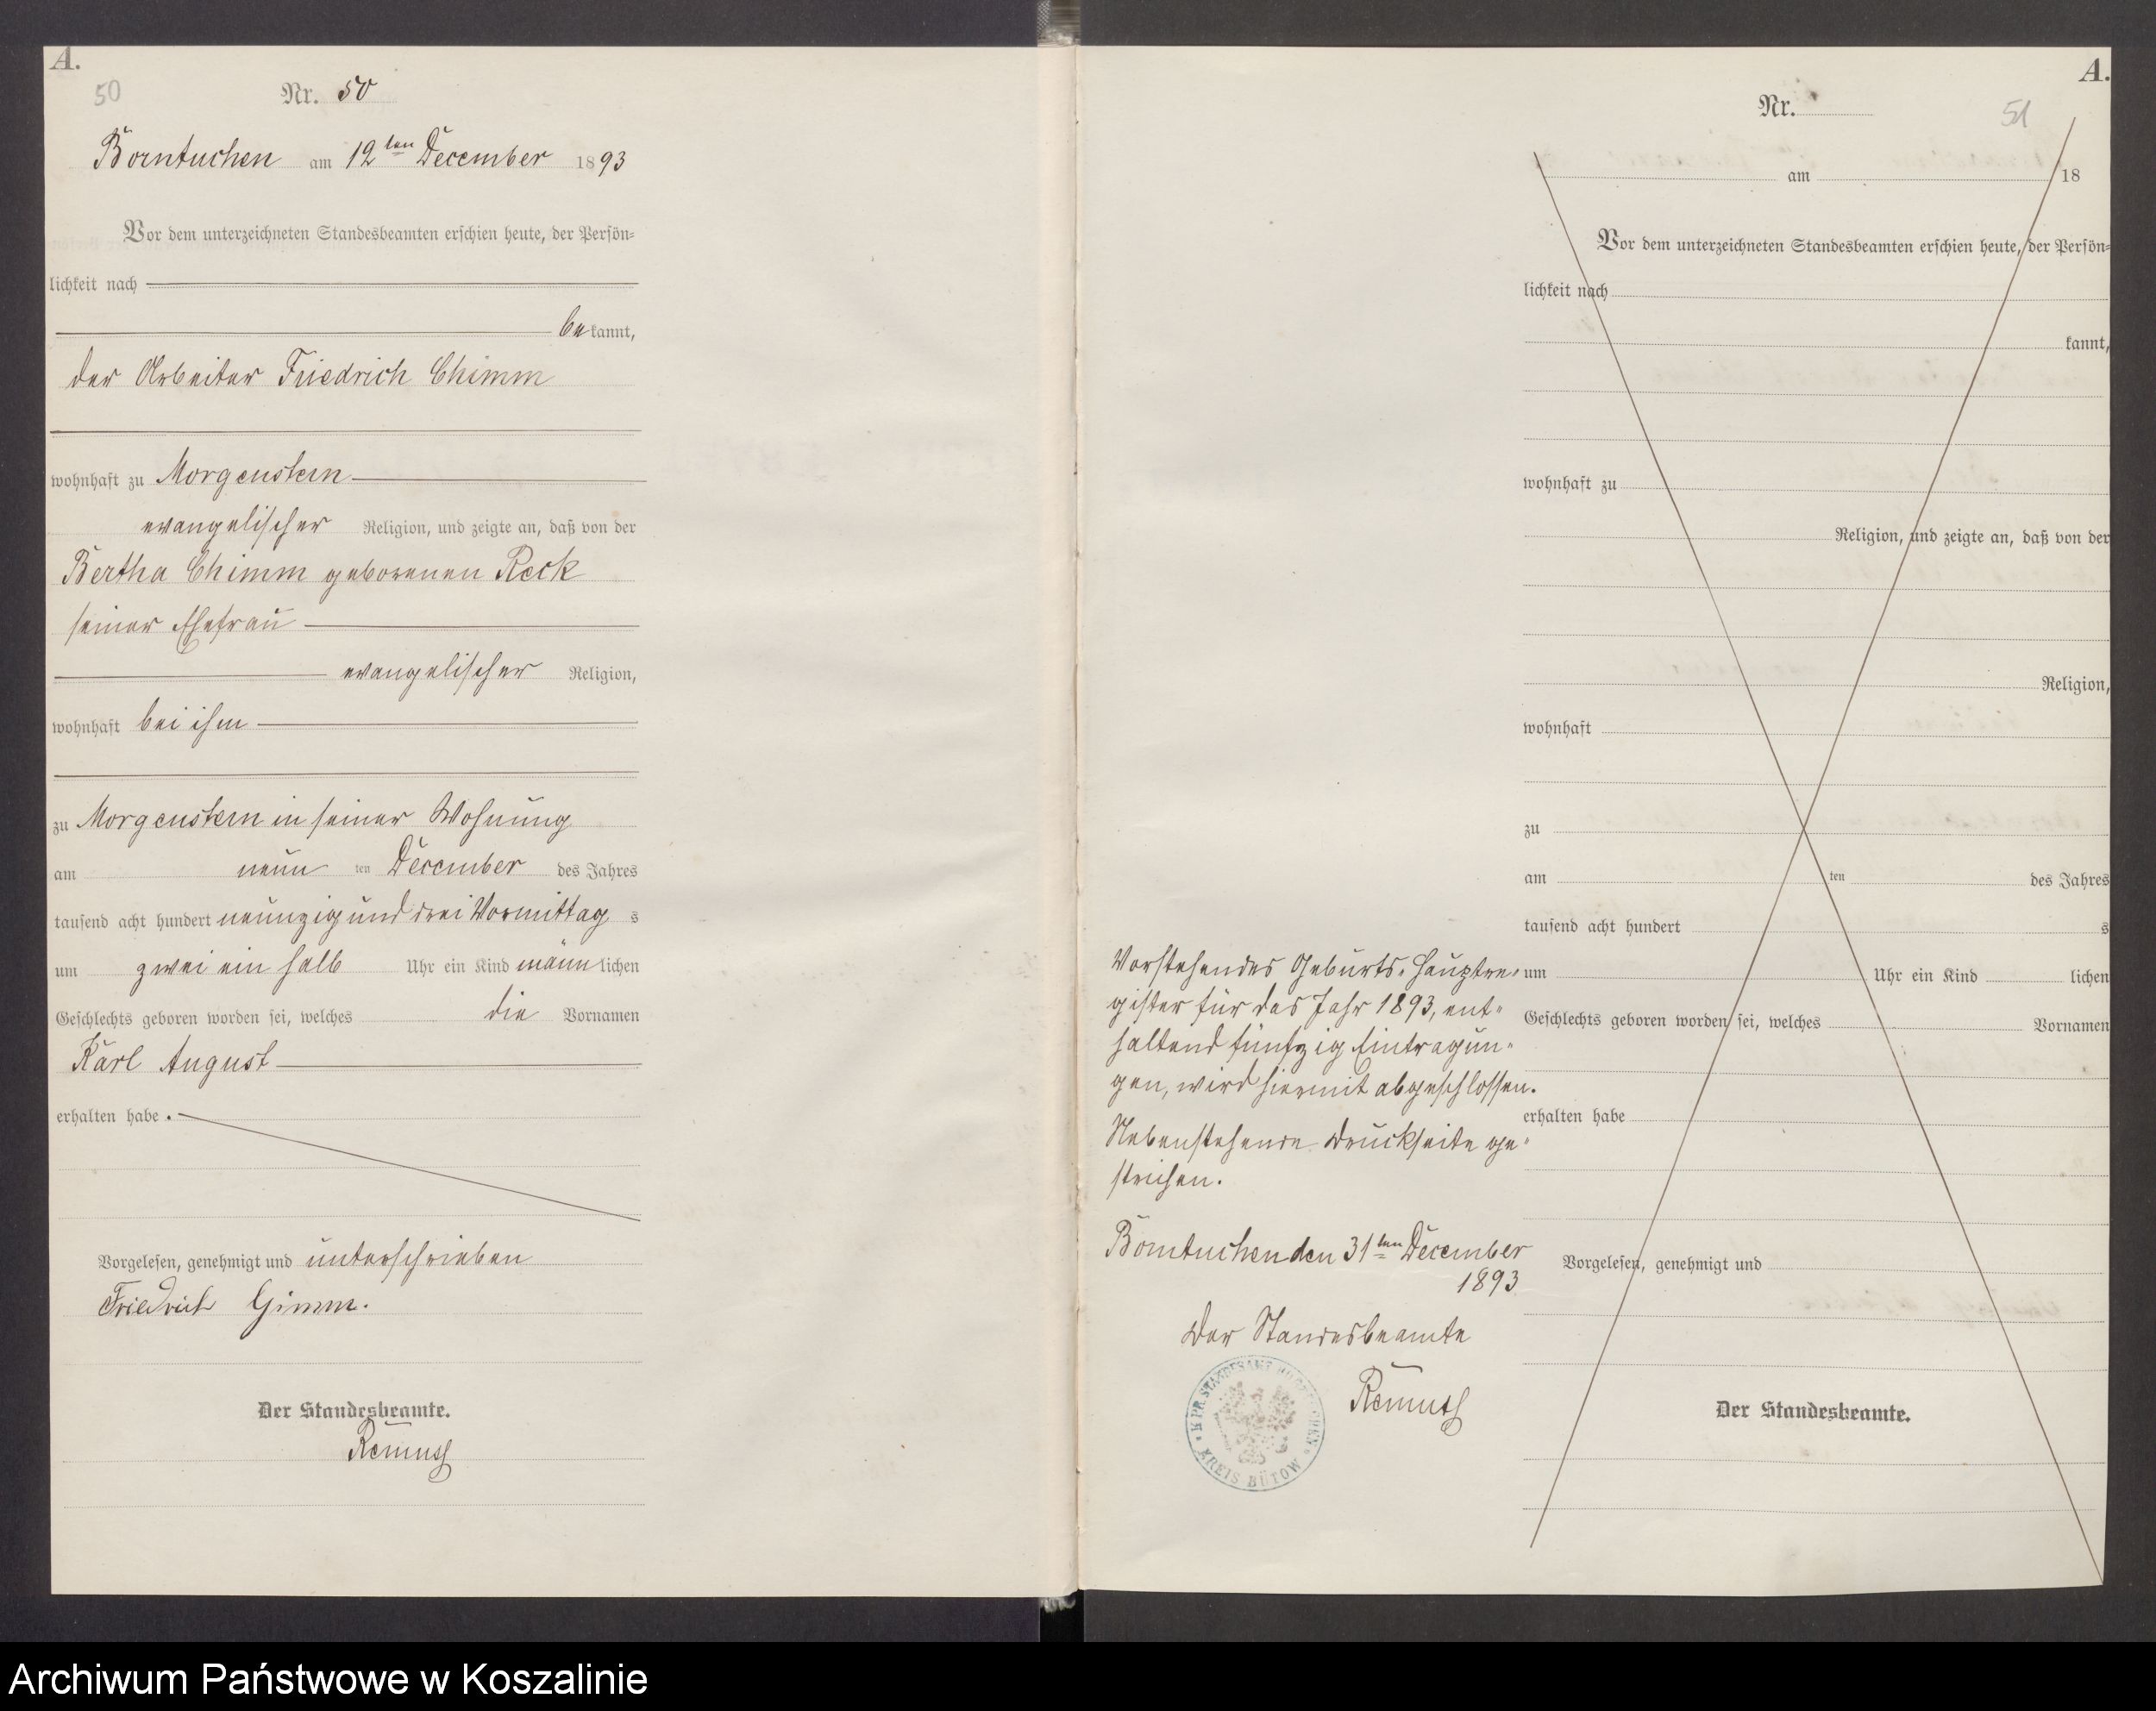 A.
50
Nr. 50
Borntuchen am 12ten December 1893
Vor dem unterzeichneten Standesbeamten erschien heute, der Persön=
lichkeit nach
bekannt,
der Arbeiter Friedrich Chimm
wohnhaft zu Morgenstern
evangelischer Religion, und zeigte an, daß von der
Bertha Chimm geborenen Reck
seiner Ehefrau
evangelischer Religion,
wohnhaft bei ihm
zu Morgenstern in seiner Wohnung
am neun ten December des Jahres
tausend acht hundert neunzig und drei Vormittag s
um zwei ein halb Uhr ein Kind männlichen
Geschlechts geboren worden sei, welches die Vornamen
Karl August
erhalten habe.
Vorgelesen, genehmigt und unterschrieben
Friedrich Gimm.
Der Standesbeamte.
Remus
A.
Nr.
51
am 18
Vor dem unterzeichneten Standesbeamten erschien heute, der Persön=
lichkeit nach
kannt,
wohnhaft zu
Religion, und zeigte an, daß von der
Religion,
wohnhaft
zu
am ten des Jahres
tausend acht hundert s
um Uhr ein Kind lichen
Geschlechts geboren worden sei, welches Vornamen
erhalten habe
Vorgelesen, genehmigt und
Der Standesbeamte.
Vorstehendes Geburts-Hauptre-
gister für das Jahr 1893, ent-
haltend fünfzig Eintragun-
gen, wird hiermit abgeschlossen.
Nebenstehende Druckseite ge-
strichen.
Borntuchen den 31ten December
1893
Der Standesbeamte
Remus
K. PR. STANDESAMT
KREIS BÜTOW
Archiwum Państwowe w Koszalinie